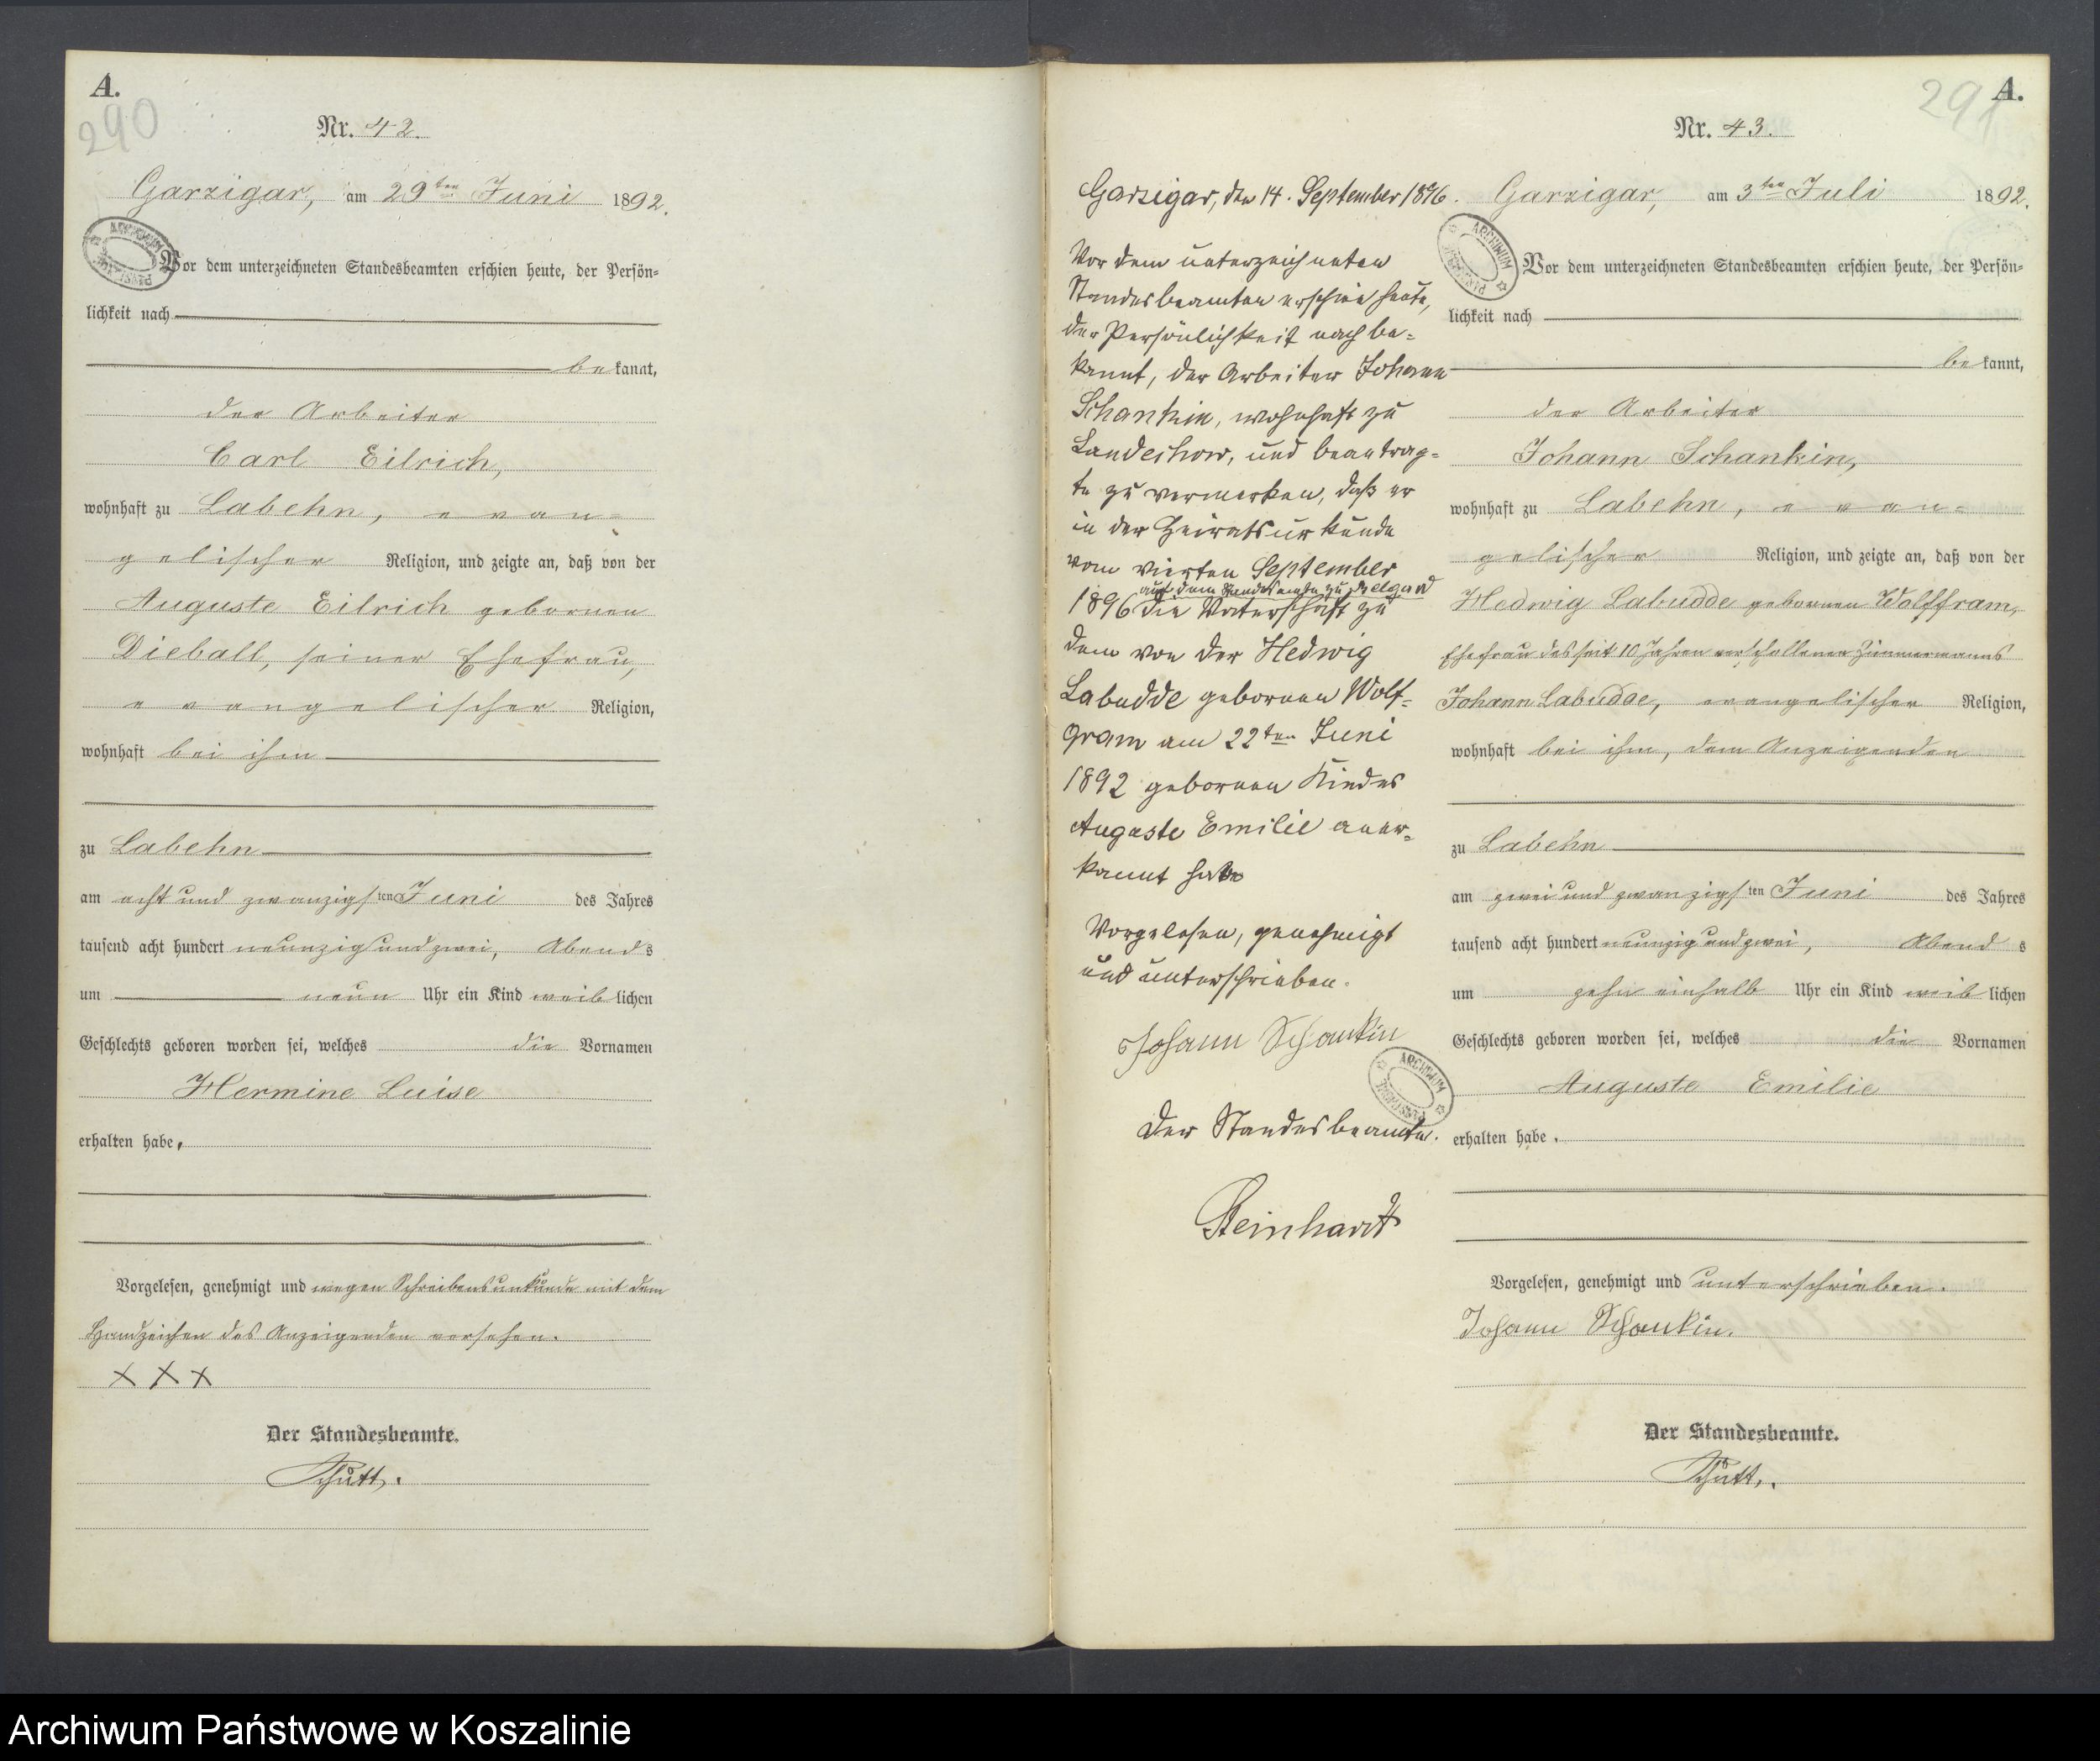 A.
290
Nr. 42.
Garzigar, am 29ten Juni 1892.
ARCHIWUM
Vor dem unterzeichneten Standesbeamten erschien heute, der Persön=
lichkeit nach
be kannt,
der Arbeiter
Carl Eilrich,
wohnhaft zu Labehn, evan=
gelischer Religion, und zeigte an, daß von der
Auguste Eilrich geborenen
Dieball, seiner Ehefrau,
evangelischer Religion,
wohnhaft bei ihm
zu Labehn
am acht und zwanzigsten Juni des Jahres
tausend acht hundert neunzig und zwei, Abends
um neun Uhr ein Kind weiblichen
Geschlechts geboren worden sei, welches die Vornamen
Hermine Luise
erhalten habe.
Vorgelesen, genehmigt und wegen Schreibensunkunde mit dem
Handzeichen des Anzeigenden versehen.
XXX
Der Standesbeamte.
Schütt.
Garzigar, den 14. September 1896.
Vor dem unterzeichneten
Standesbeamten erschien heute,
der Persönlichkeit nach be=
kannt, der Arbeiter Johann
Schankin, wohnhaft zu
Landechow, und beantrag=
te zu vermerken, daß er
in der Heiratsurkunde
vom vierten September
auf dem Standesamte zu Belgard
1896 die Vaterschaft zu
dem von der Hedwig
Labudde geborenen Wolf=
gram am 22ten Juni
1892 geborenen Kindes
Auguste Emilie aner=
kannt habe
Vorgelesen, genehmigt
und unterschrieben.
Johann Schankin
ARCHIWUM
Der Standesbeamte.
Reinhardt
291
A.
Nr. 43.
Garzigar, am 3ten Juli 1892.
ARCHIWUM
Vor dem unterzeichneten Standesbeamten erschien heute, der Persön=
lichkeit nach
be kannt,
der Arbeiter
Johann Schankin,
wohnhaft zu Labehn, evan=
gelischer Religion, und zeigte an, daß von der
Hedwig Labudde geborenen Wolffram,
Ehefrau des seit 10 Jahren verschollenen Zimmermanns
Johann Labudde, evangelischer Religion,
wohnhaft bei ihm, dem Anzeigenden
zu Labehn
am zwei und zwanzigsten Juni des Jahres
tausend acht hundert neunzig und zwei, Abends
um zehn einhalb Uhr ein Kind weiblichen
Geschlechts geboren worden sei, welches die Vornamen
Auguste Emilie
erhalten habe.
Vorgelesen, genehmigt und unterschrieben.
Johann Schankin.
Der Standesbeamte.
Schütt.
Archiwum Państwowe w Koszalinie